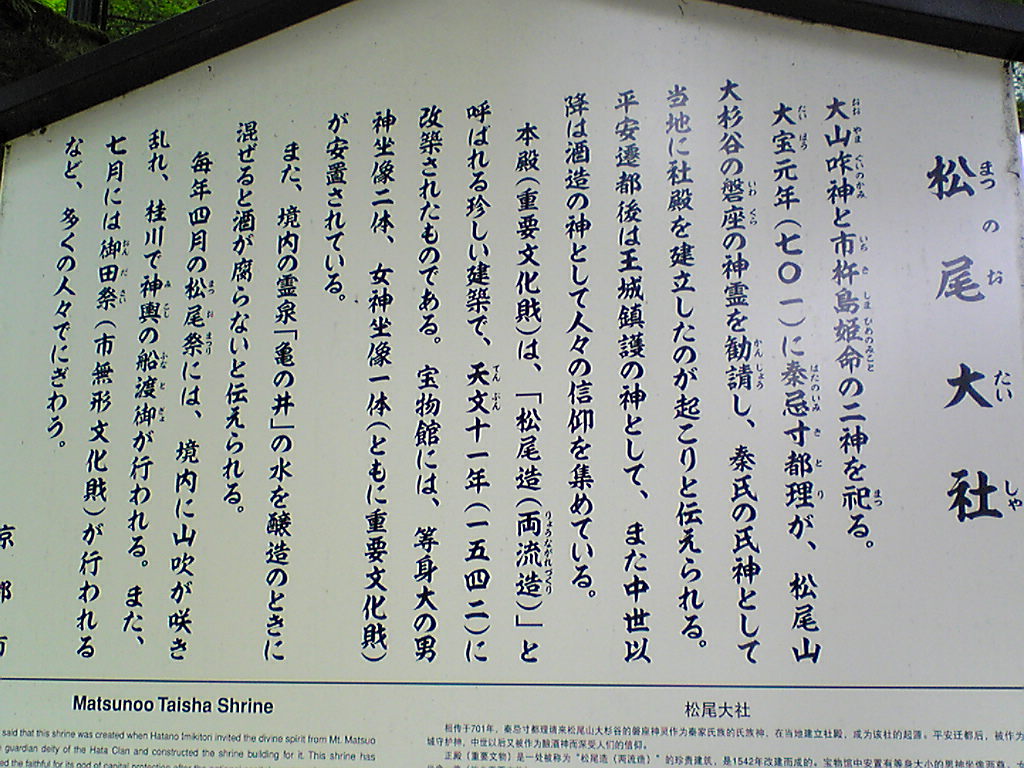 松尾大社
まつのおたいしゃ
大山咋神と市杵島姫命の二神を祀る。
大宝元年(七〇一)に秦忌寸都理が、松尾山
大杉谷の磐座の神霊を勧請し、秦氏の氏神として
当地に社殿を建立したのが起こりと伝えられる。
平安遷都後は王城鎮護の神として、また中世以
降は酒造の神として人々の信仰を集めている。
本殿(重要文化財)は、「松尾造(両流造)」と
呼ばれる珍しい建築で、天文十一年(一五四二)に
改築されたものである。宝物館には、等身大の男
神坐像二体、女神坐像一体(ともに重要文化財)
が安置されている。
また、境内の霊泉「亀の井」の水を醸造のときに
混ぜると酒が腐らないと伝えられる。
毎年四月の松尾祭には、境内に山吹が咲き
乱れ、桂川で神輿の船渡御が行われる。また、
七月には御田祭(市無形文化財)が行われる
など、多くの人々でにぎわう。
京
Matsunoo Taisha Shrine
said that this shrine was created when Hatano Imikitori invited the divine spirit from Mt. Matsuo
guardian deity of the Hata Clan and constructed the shrine building for it. This shrine has
ed the faithful for its god of capital protection after the
松尾大社
相传于701年，秦忌寸都理请来松尾山大杉谷的磐座神灵作为秦家氏族的氏族神，在当地建立社殿，成为该社的起源。平安迁都后，被作为
城守护神，中世以后又被作为酿酒神而深受人们的信仰。
正殿（重要文物）是一处被称为“松尾造（两流造）”的珍贵建筑，是1542年改建而成的。宝物馆中安置有等身大小的男神坐像两尊，